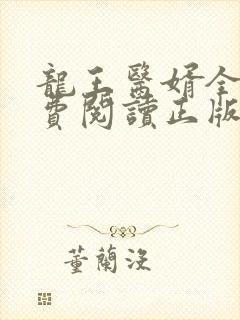 龍王醫婿全
費閱讀正版
董蘭沒